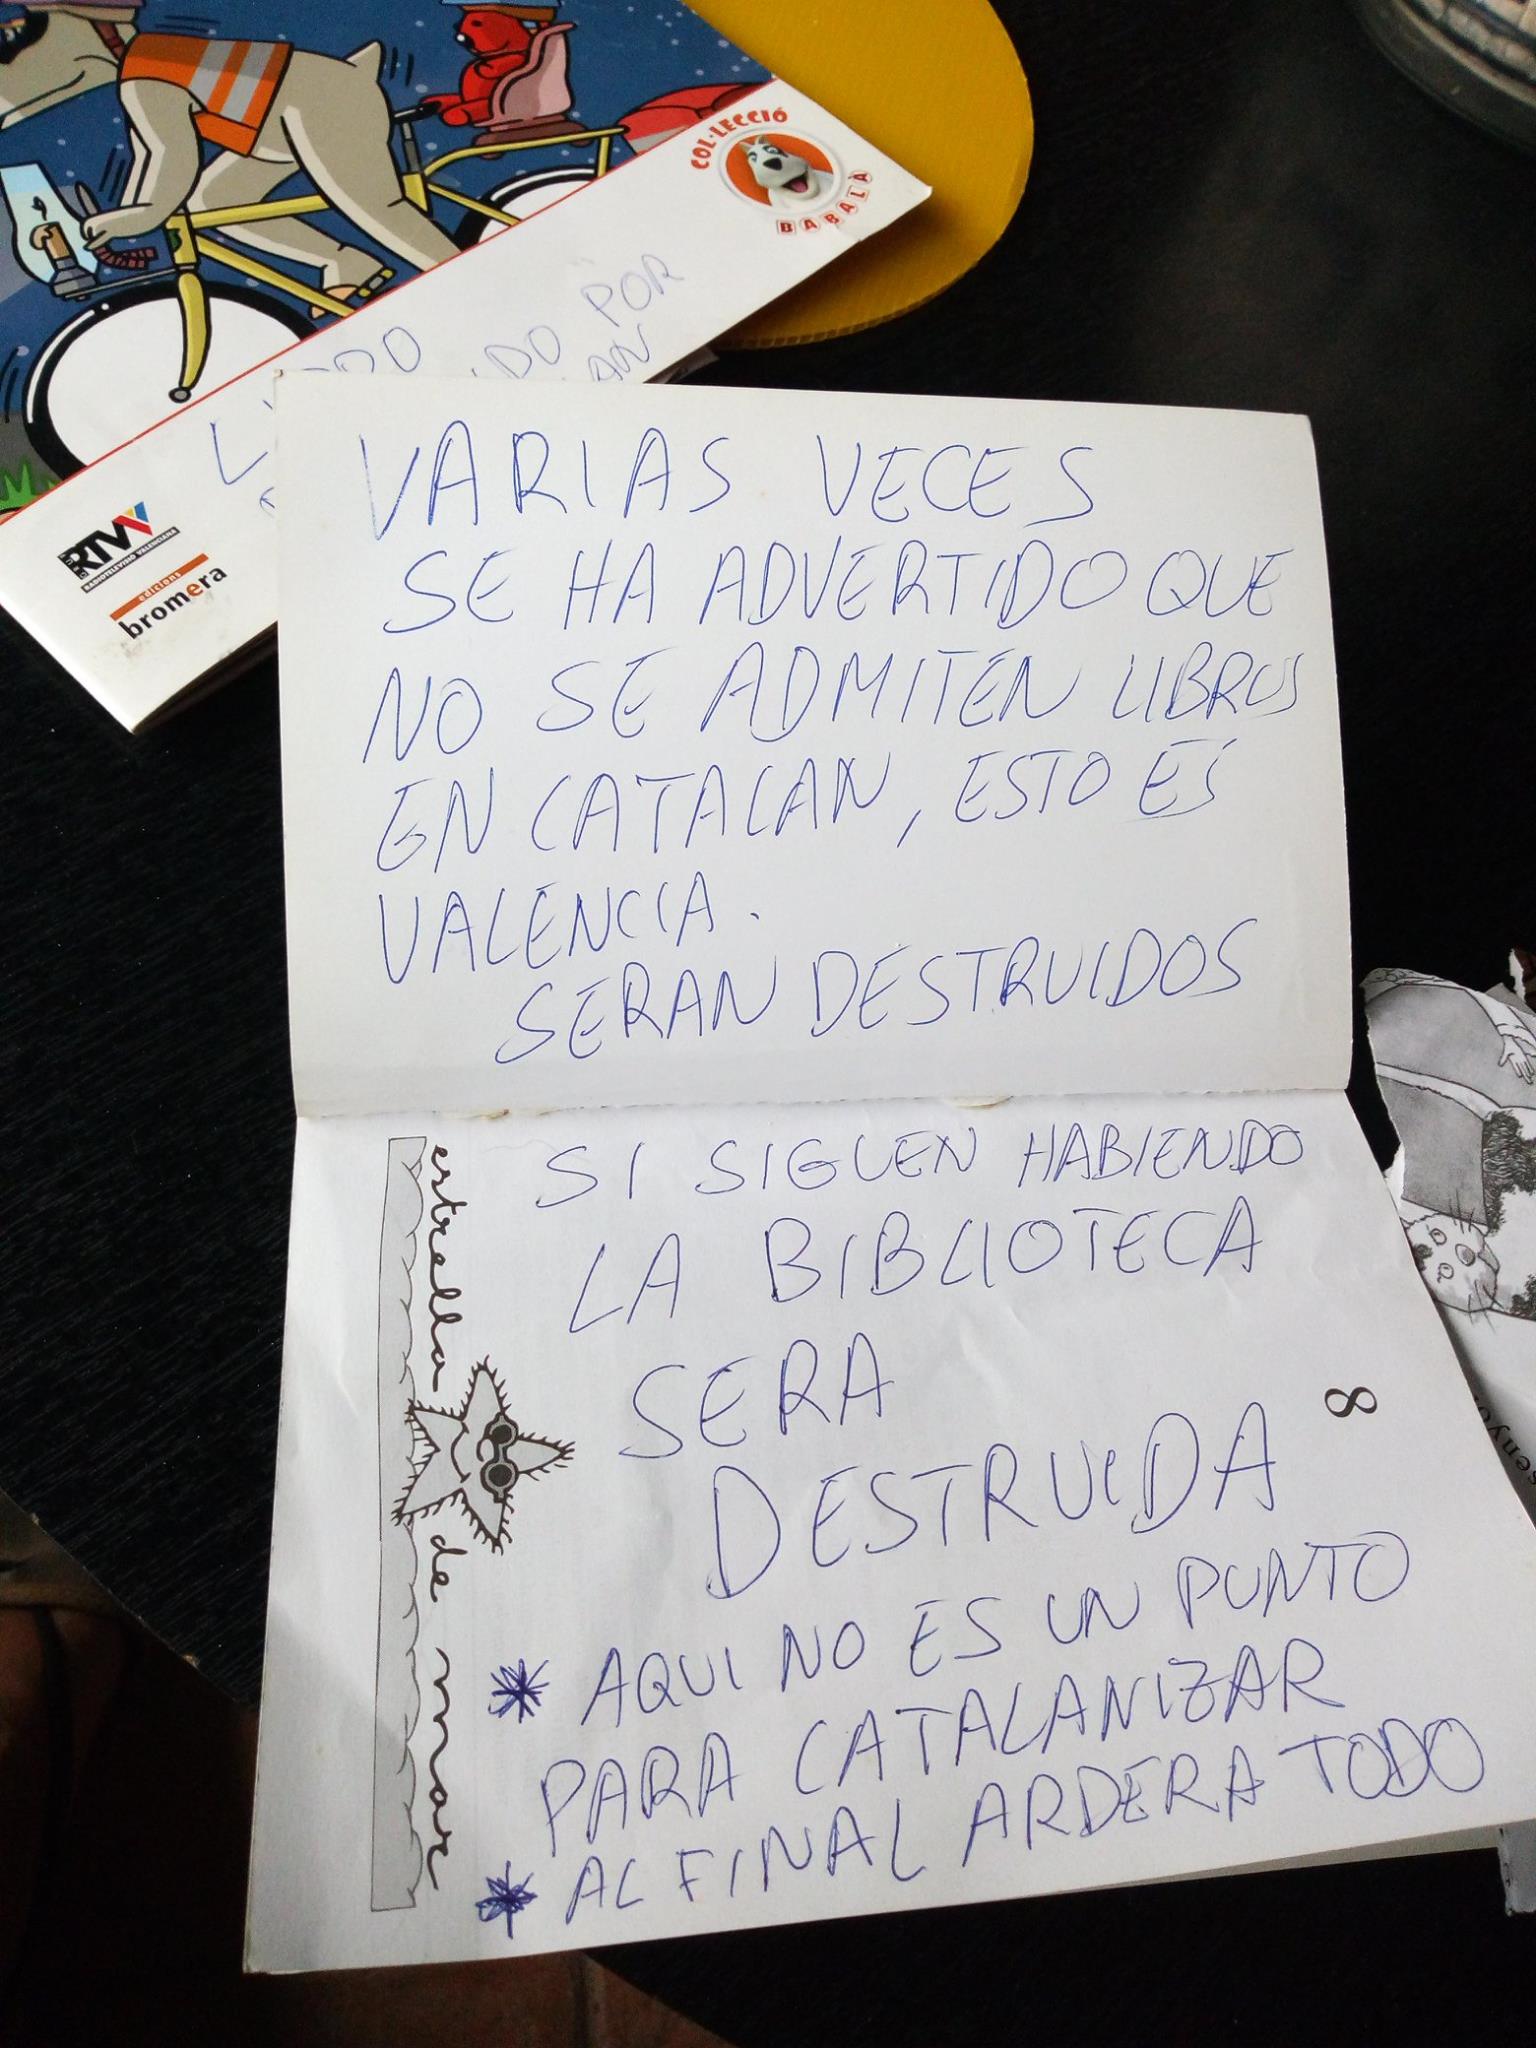 COL·LECCIÓ
BABALÀ
POR
RTVV
RADIOTELEVISIÓ VALENCIANA
edicions
bromera
VARIAS VECES
SE HA ADVERTIDO QUE
NO SE ADMITEN LIBROS
EN CATALAN, ESTO ES
VALENCIA.
SERAN DESTRUIDOS
SI SIGUEN HABIENDO
LA BIBLIOTECA
SERA
DESTRUIDA
8
* AQUI NO ES UN PUNTO
PARA CATALANIZAR
* AL FINAL ARDERA TODO
estrella de mar